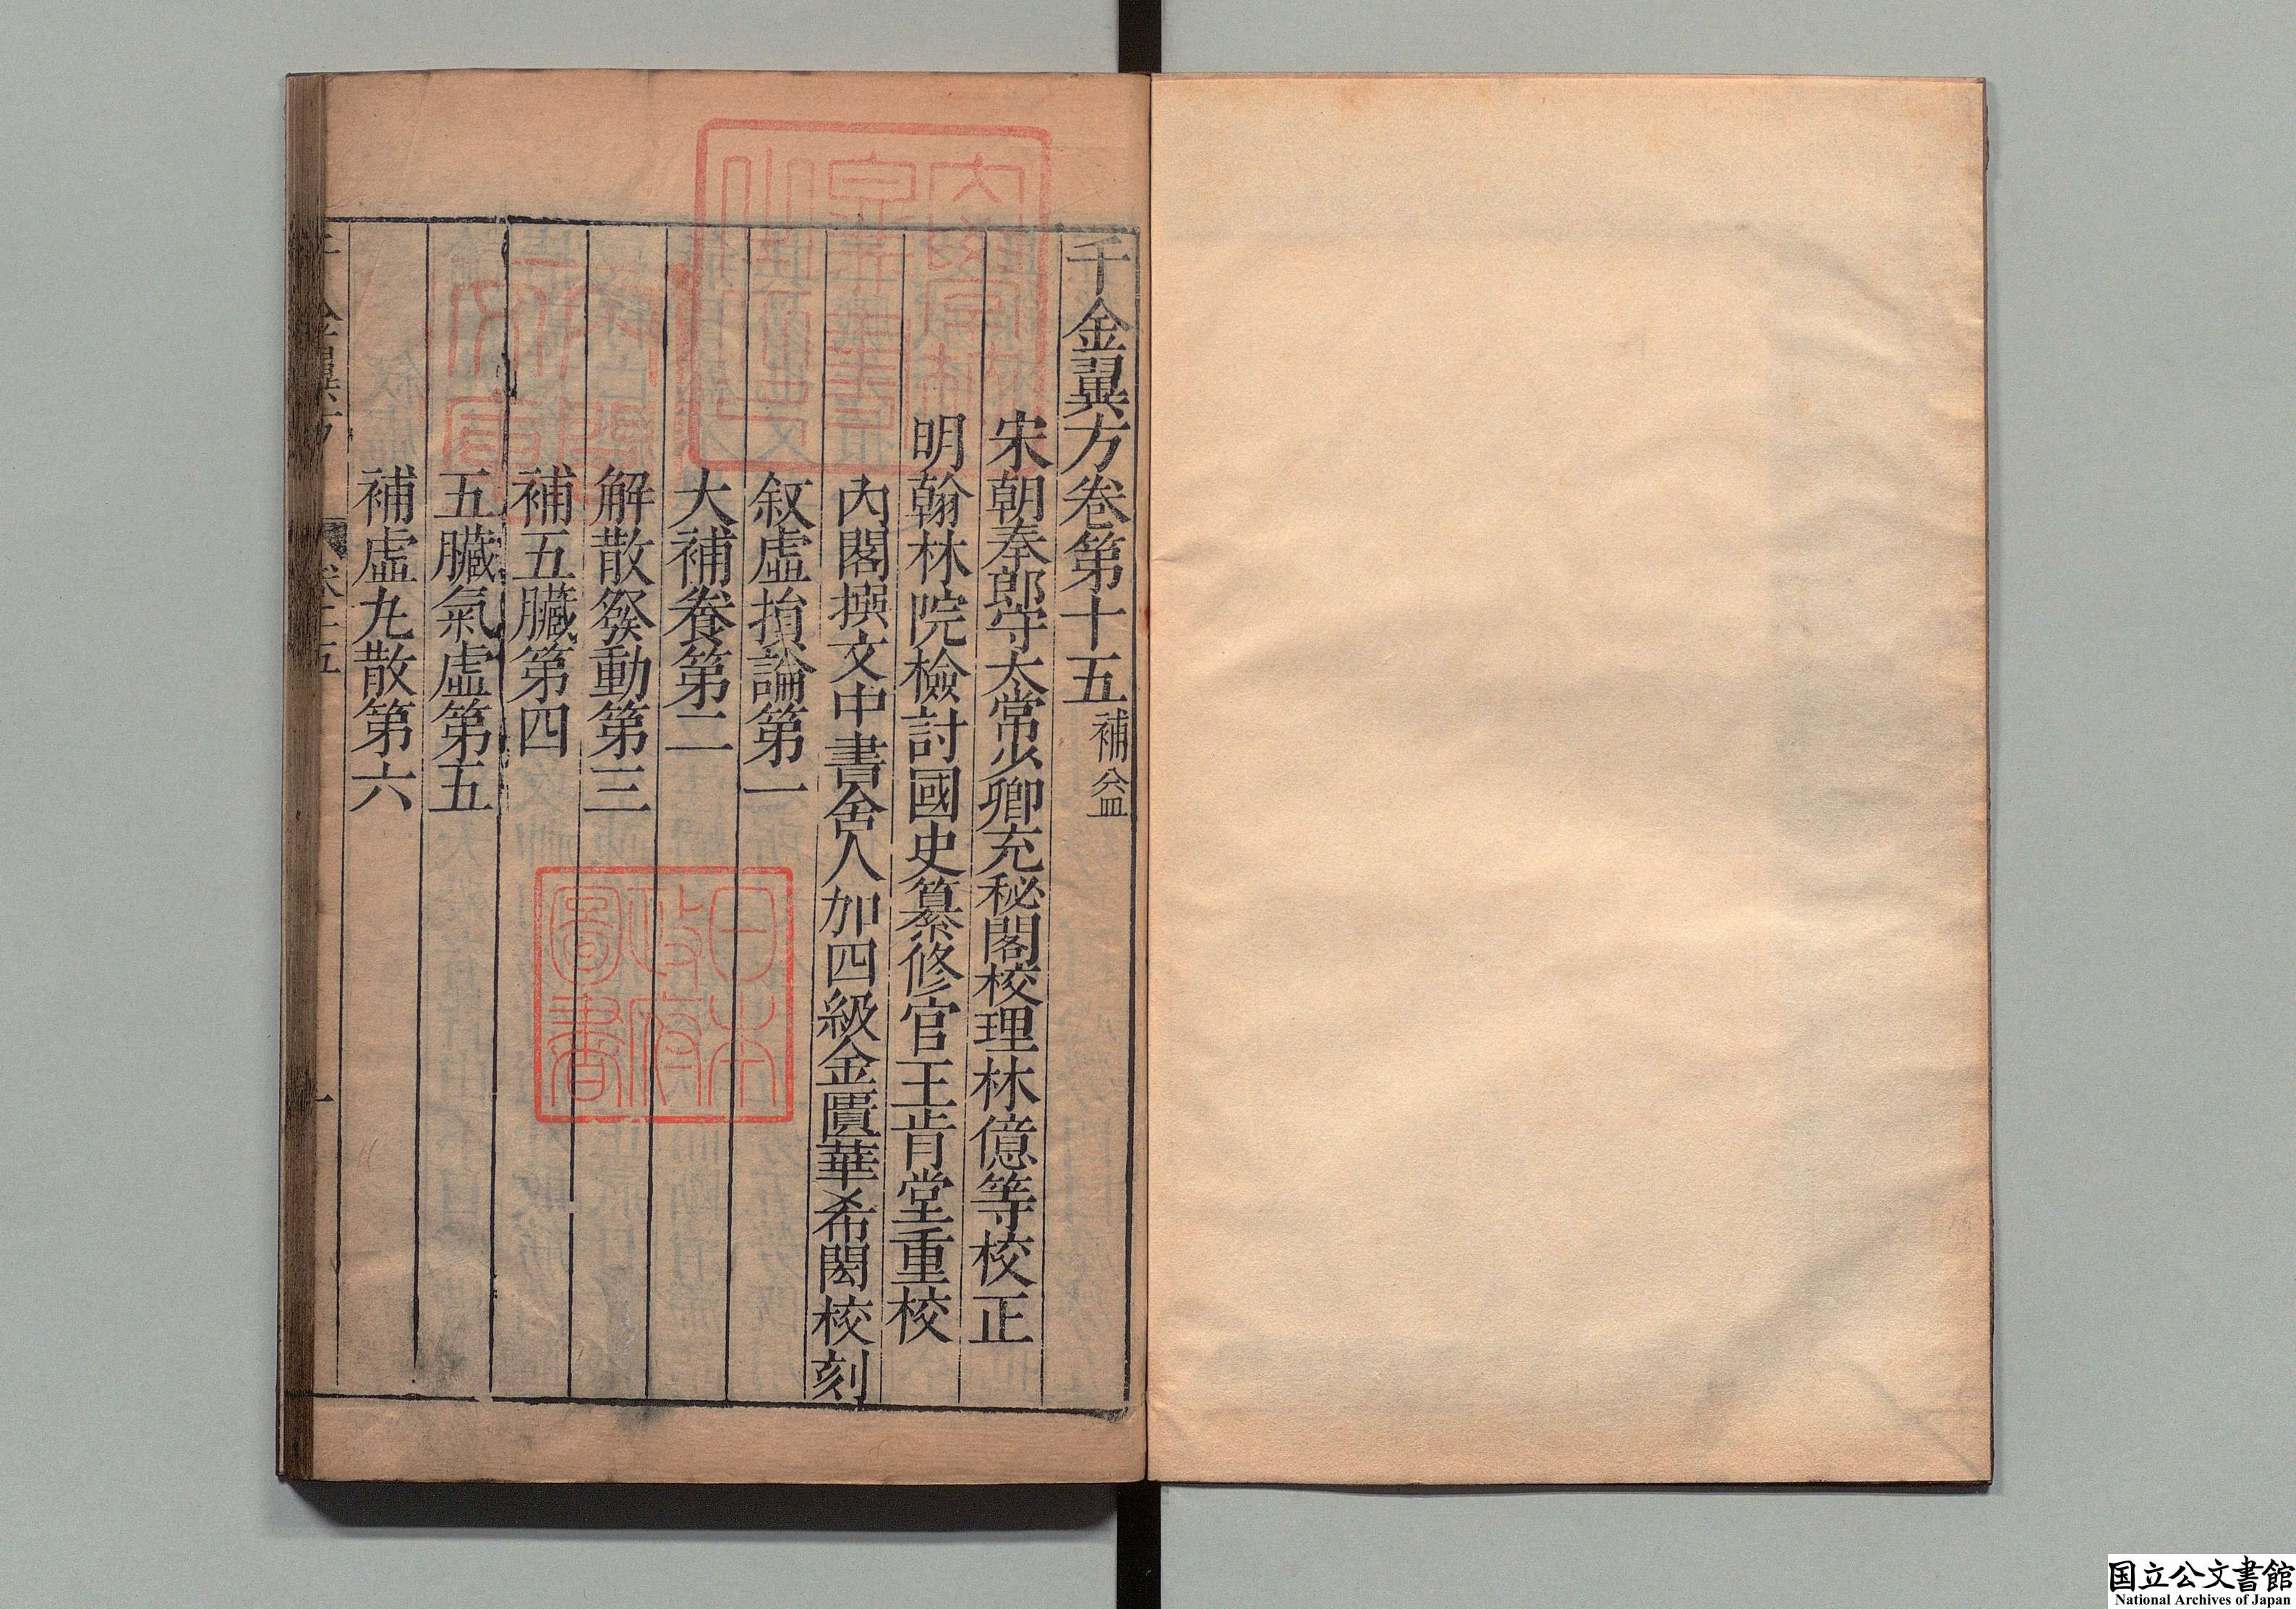 千金翼方卷第十五補益
宋朝奉郎守太常少卿充秘閣校理林億等校正
明翰林院檢討國史纂修官王肯堂重校
內閣撰文中書舍人加四級金匱華希閎校刻
叙虛損論第一
大補養第二
解散發動第三
補五臟第四
五臟氣虛第五
補虛丸散第六
千金翼方
卷十五
一
日本
政府
圖書
国立公文書館
National Archives of Japan